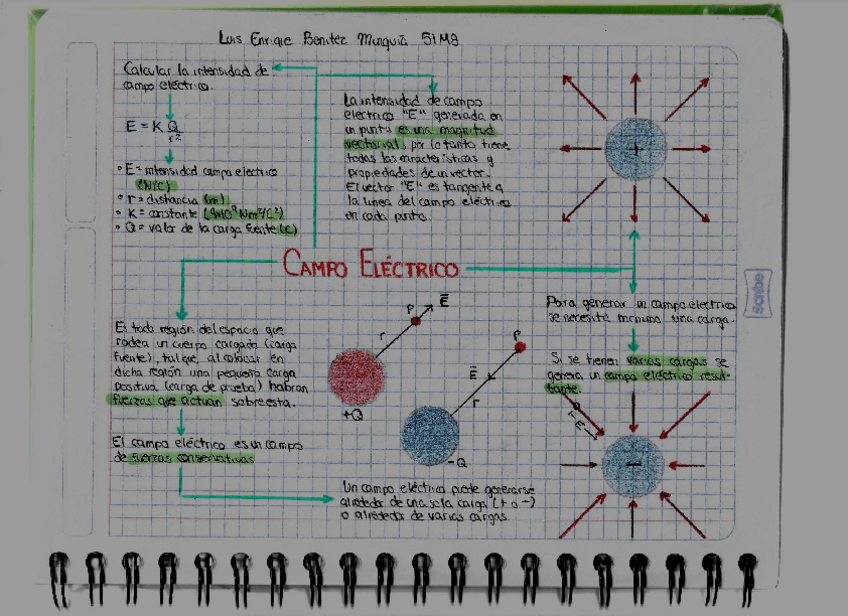 Luis Enrique Benitez Munguia 5IM8
Calcular la intensidad de
campo eléctrico.
E = K Q
r²
• E = intensidad campo electrico
(N/C)
• r = distancia (m)
• K = constante (9x10⁹ Nm²/C²)
• Q = valor de la carga fuente (C)
La intensidad de campo
electrico "E" generada en
un punto es una magnitud
vectorial, por lo tanto tiene
todas las características y
propiedades de un vector.
El vector "E" es tangente a
la linea del campo eléctrico
en cada punto.
+
CAMPO ELÉCTRICO
Para generar un campo electrico
se necesita minimo una carga.
Si se tienen varias cargas se
genera un campo eléctrico resul-
tante.
Es toda región del espacio que
rodea un cuerpo cargado (carga
fuente), tal que, al colocar en
dicha región una pequeña carga
positiva (carga de prueba) habran
fuerzas que actuan sobre esta.
El campo eléctrico es un campo
de fuerzas conservativas
P E
r
+Q
P
E
r
-Q
Un campo eléctrico puede generarse
alrededor de una sola carga (+ o -)
o alrededor de varias cargas.
E
-
Scribe